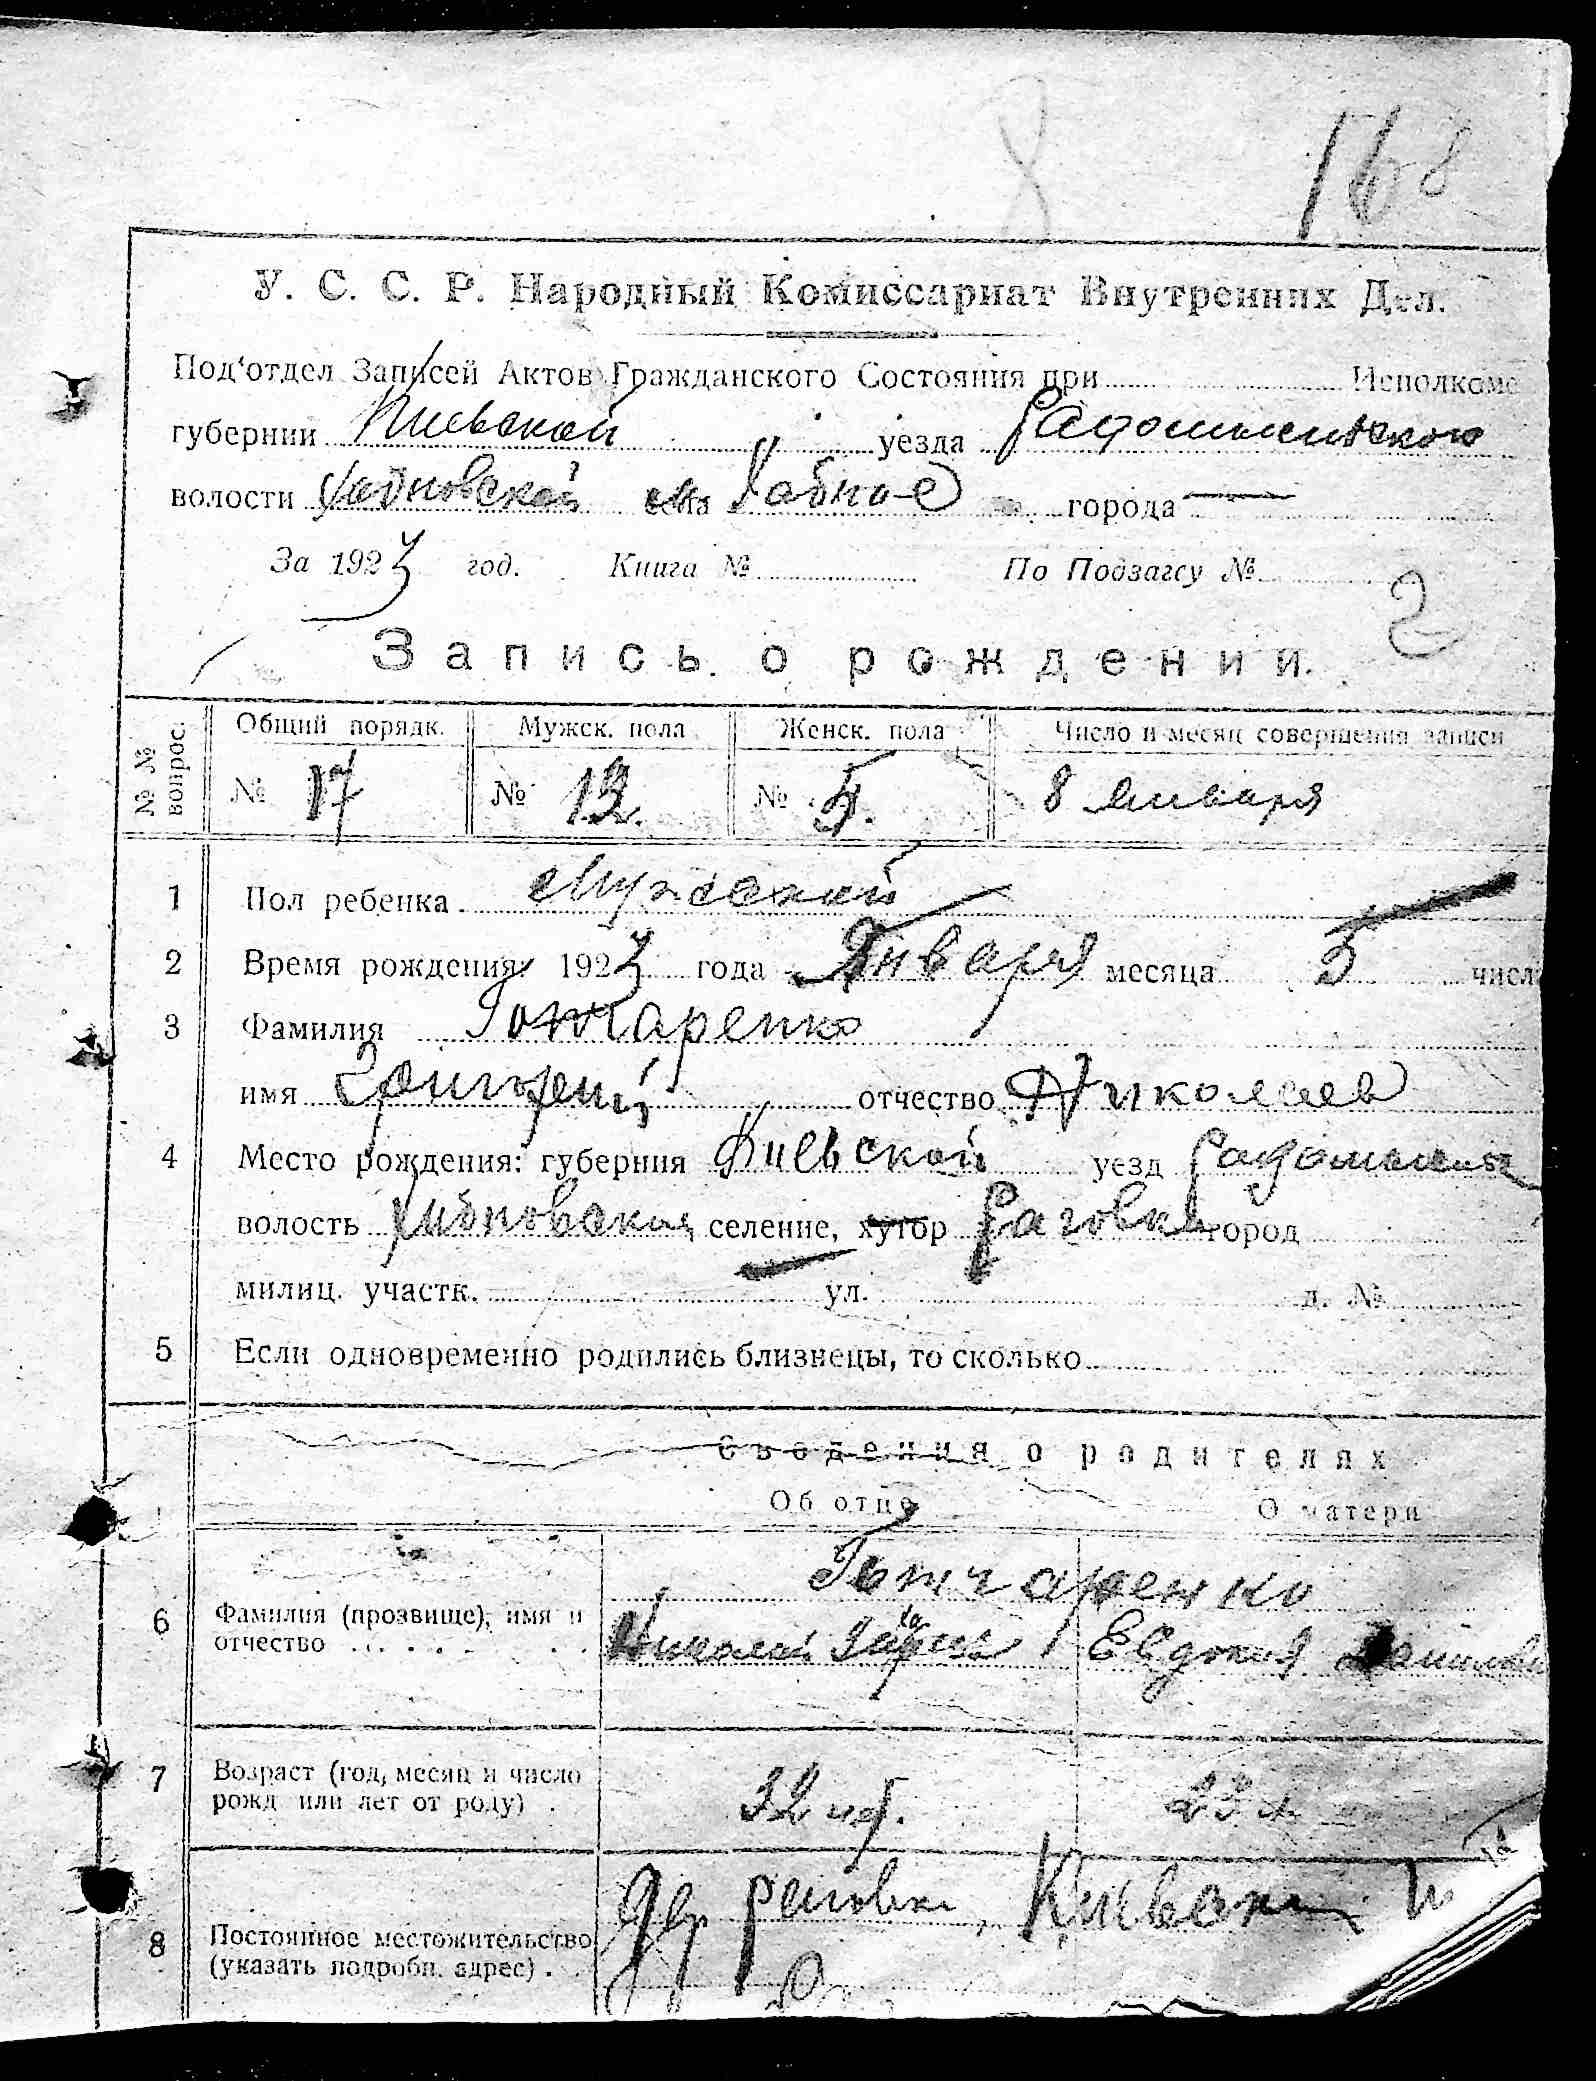 8
168
У. С. С. Р. Народный Комиссариат Внутренних Дел.
Под'отдел Записей Актов Гражданского Состояния при Исполкоме
губернии Киевской уезда Радомысльского
волости Хабновской села Хабное города —
За 1923 год. Книга № По Подзагсу №
2
Запись о рождении.
№ № вопрос. Общий порядк. Мужск. пола Женск. пола Число и месяц совершения записи
№ 17 № 12. № 5. 8 января
1 Пол ребенка Мужской
2 Время рождения: 1923 года Января месяца 5 числ
3 Фамилия Гончаренко
имя Григорий отчество Николаев
4 Место рождения: губерния Киевской уезд Радомысль
волость Хабновская селение, хутор Раговка город
милиц. участк. ул. д. №
5 Если одновременно родились близнецы, то сколько
Сведения о родителях
Об отце О матери
Гончаренко
6 Фамилия (прозвище), имя и
отчество Николай Евдокия
7 Возраст (год, месяц и число
рожд или лет от роду) 32 23
8 Постоянное местожительство
(указать подробн. адрес) дер. Киевской